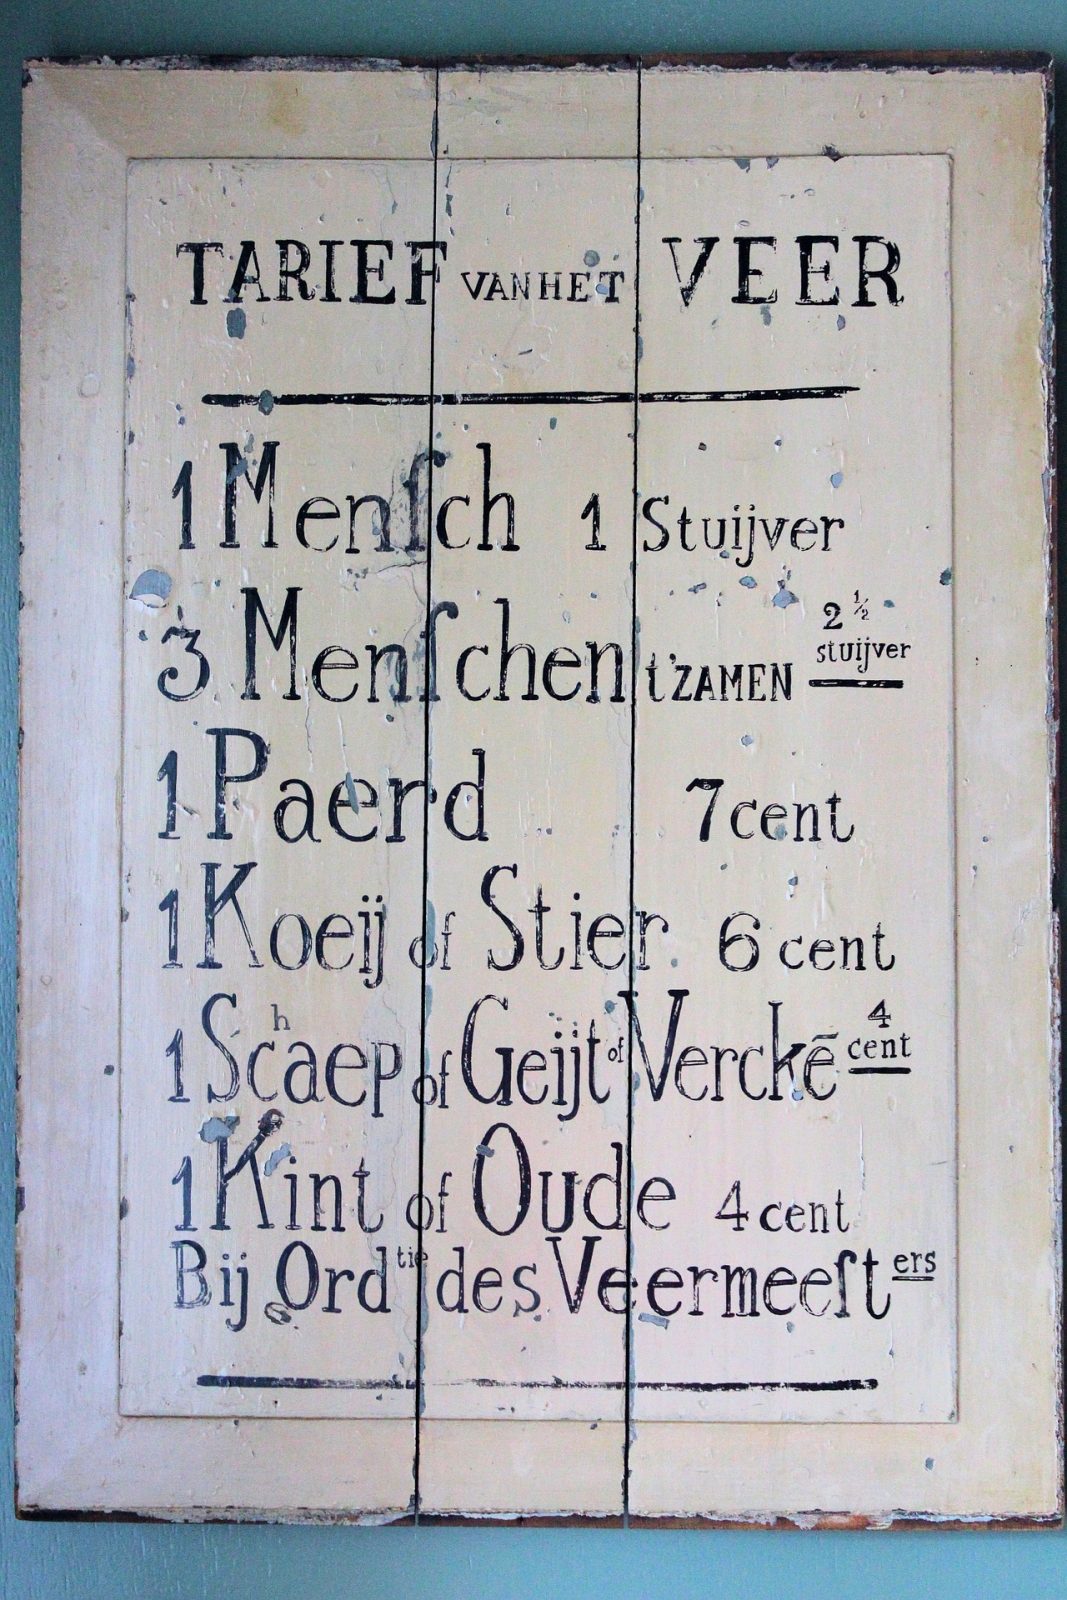 TARIEF VAN HET VEER
1 Menſch 1 Stuijver
3 Menſchen t'ZAMEN 2 ½ stuijver
1 Paerd 7 cent
1 Koeij of Stier 6 cent
1 Schaep of Geijt of Verckē 4 cent
1 Kint of Oude 4 cent
Bij Ordtie des Veermeeſters